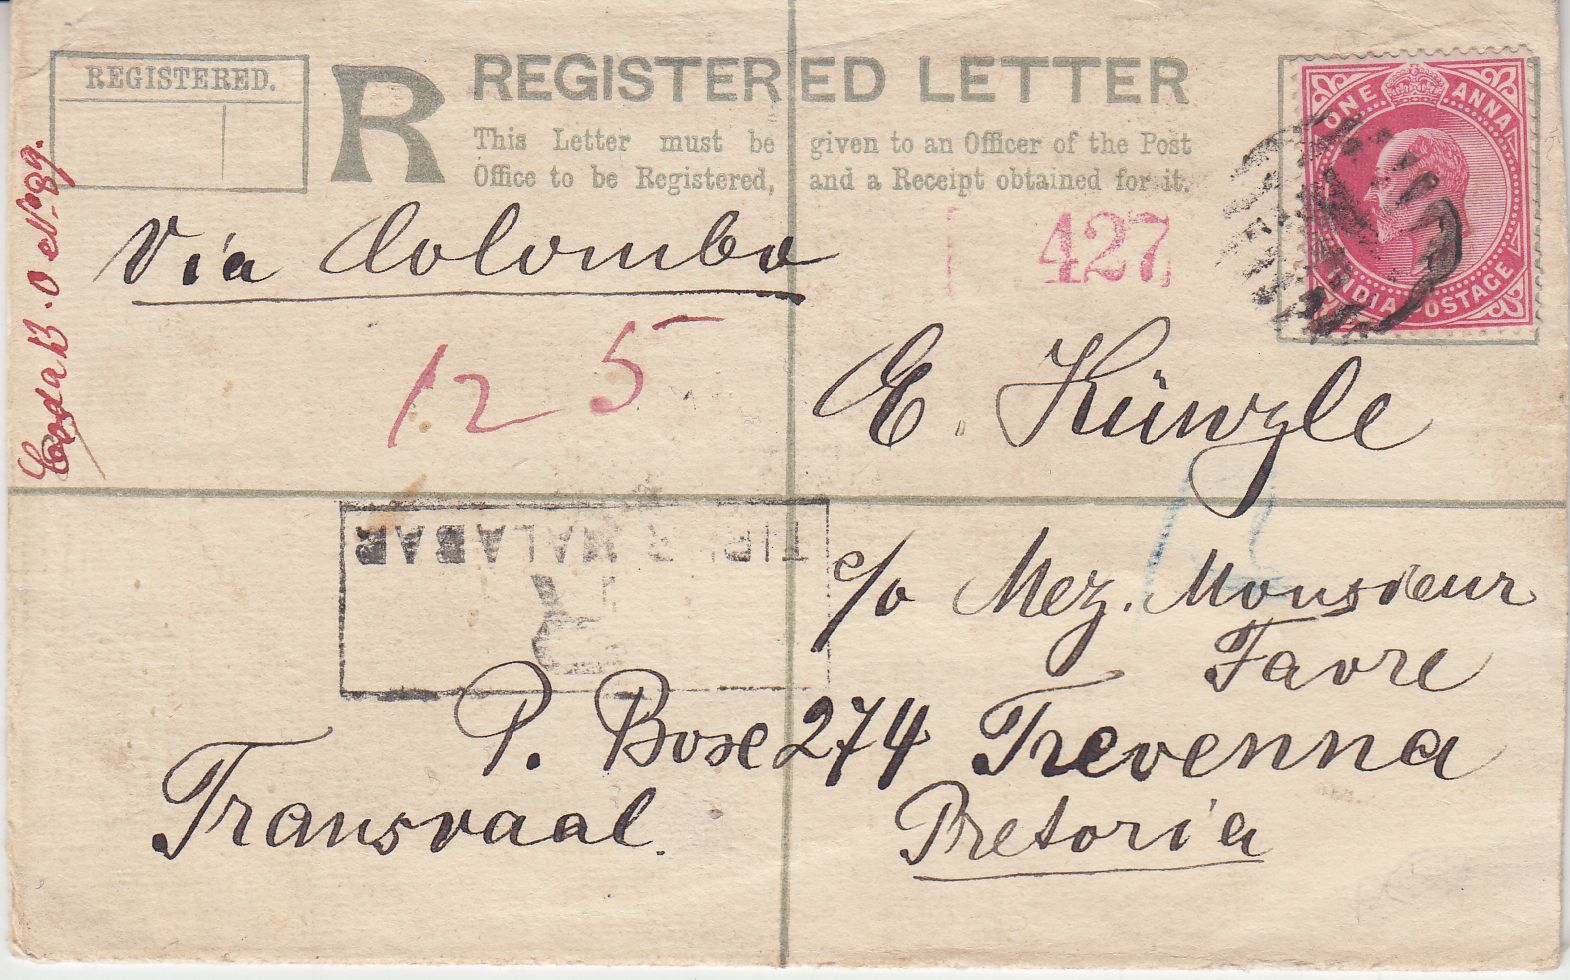 REGISTERED.
R REGISTERED LETTER
This Letter must be given to an Officer of the Post
Office to be Registered, and a Receipt obtained for it.
ONE ANNA
INDIA POSTAGE
No 39.
Via Colombo
427
12 5
E. Künzle
MALABAR
c/o Mez. Monsieur
Favre
P. Boxe 274 Trevenna
Transvaal.
Pretoria